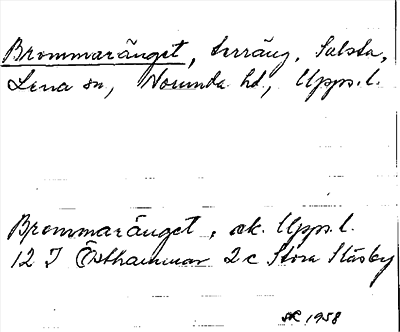 Brommaränget, terräng, Salsta,
Lena sn, Norunda hd, Upps. l.
Brommaränget, ek. Upps. l.
12 I Östhammar 2 c Stora Ståsby
1958